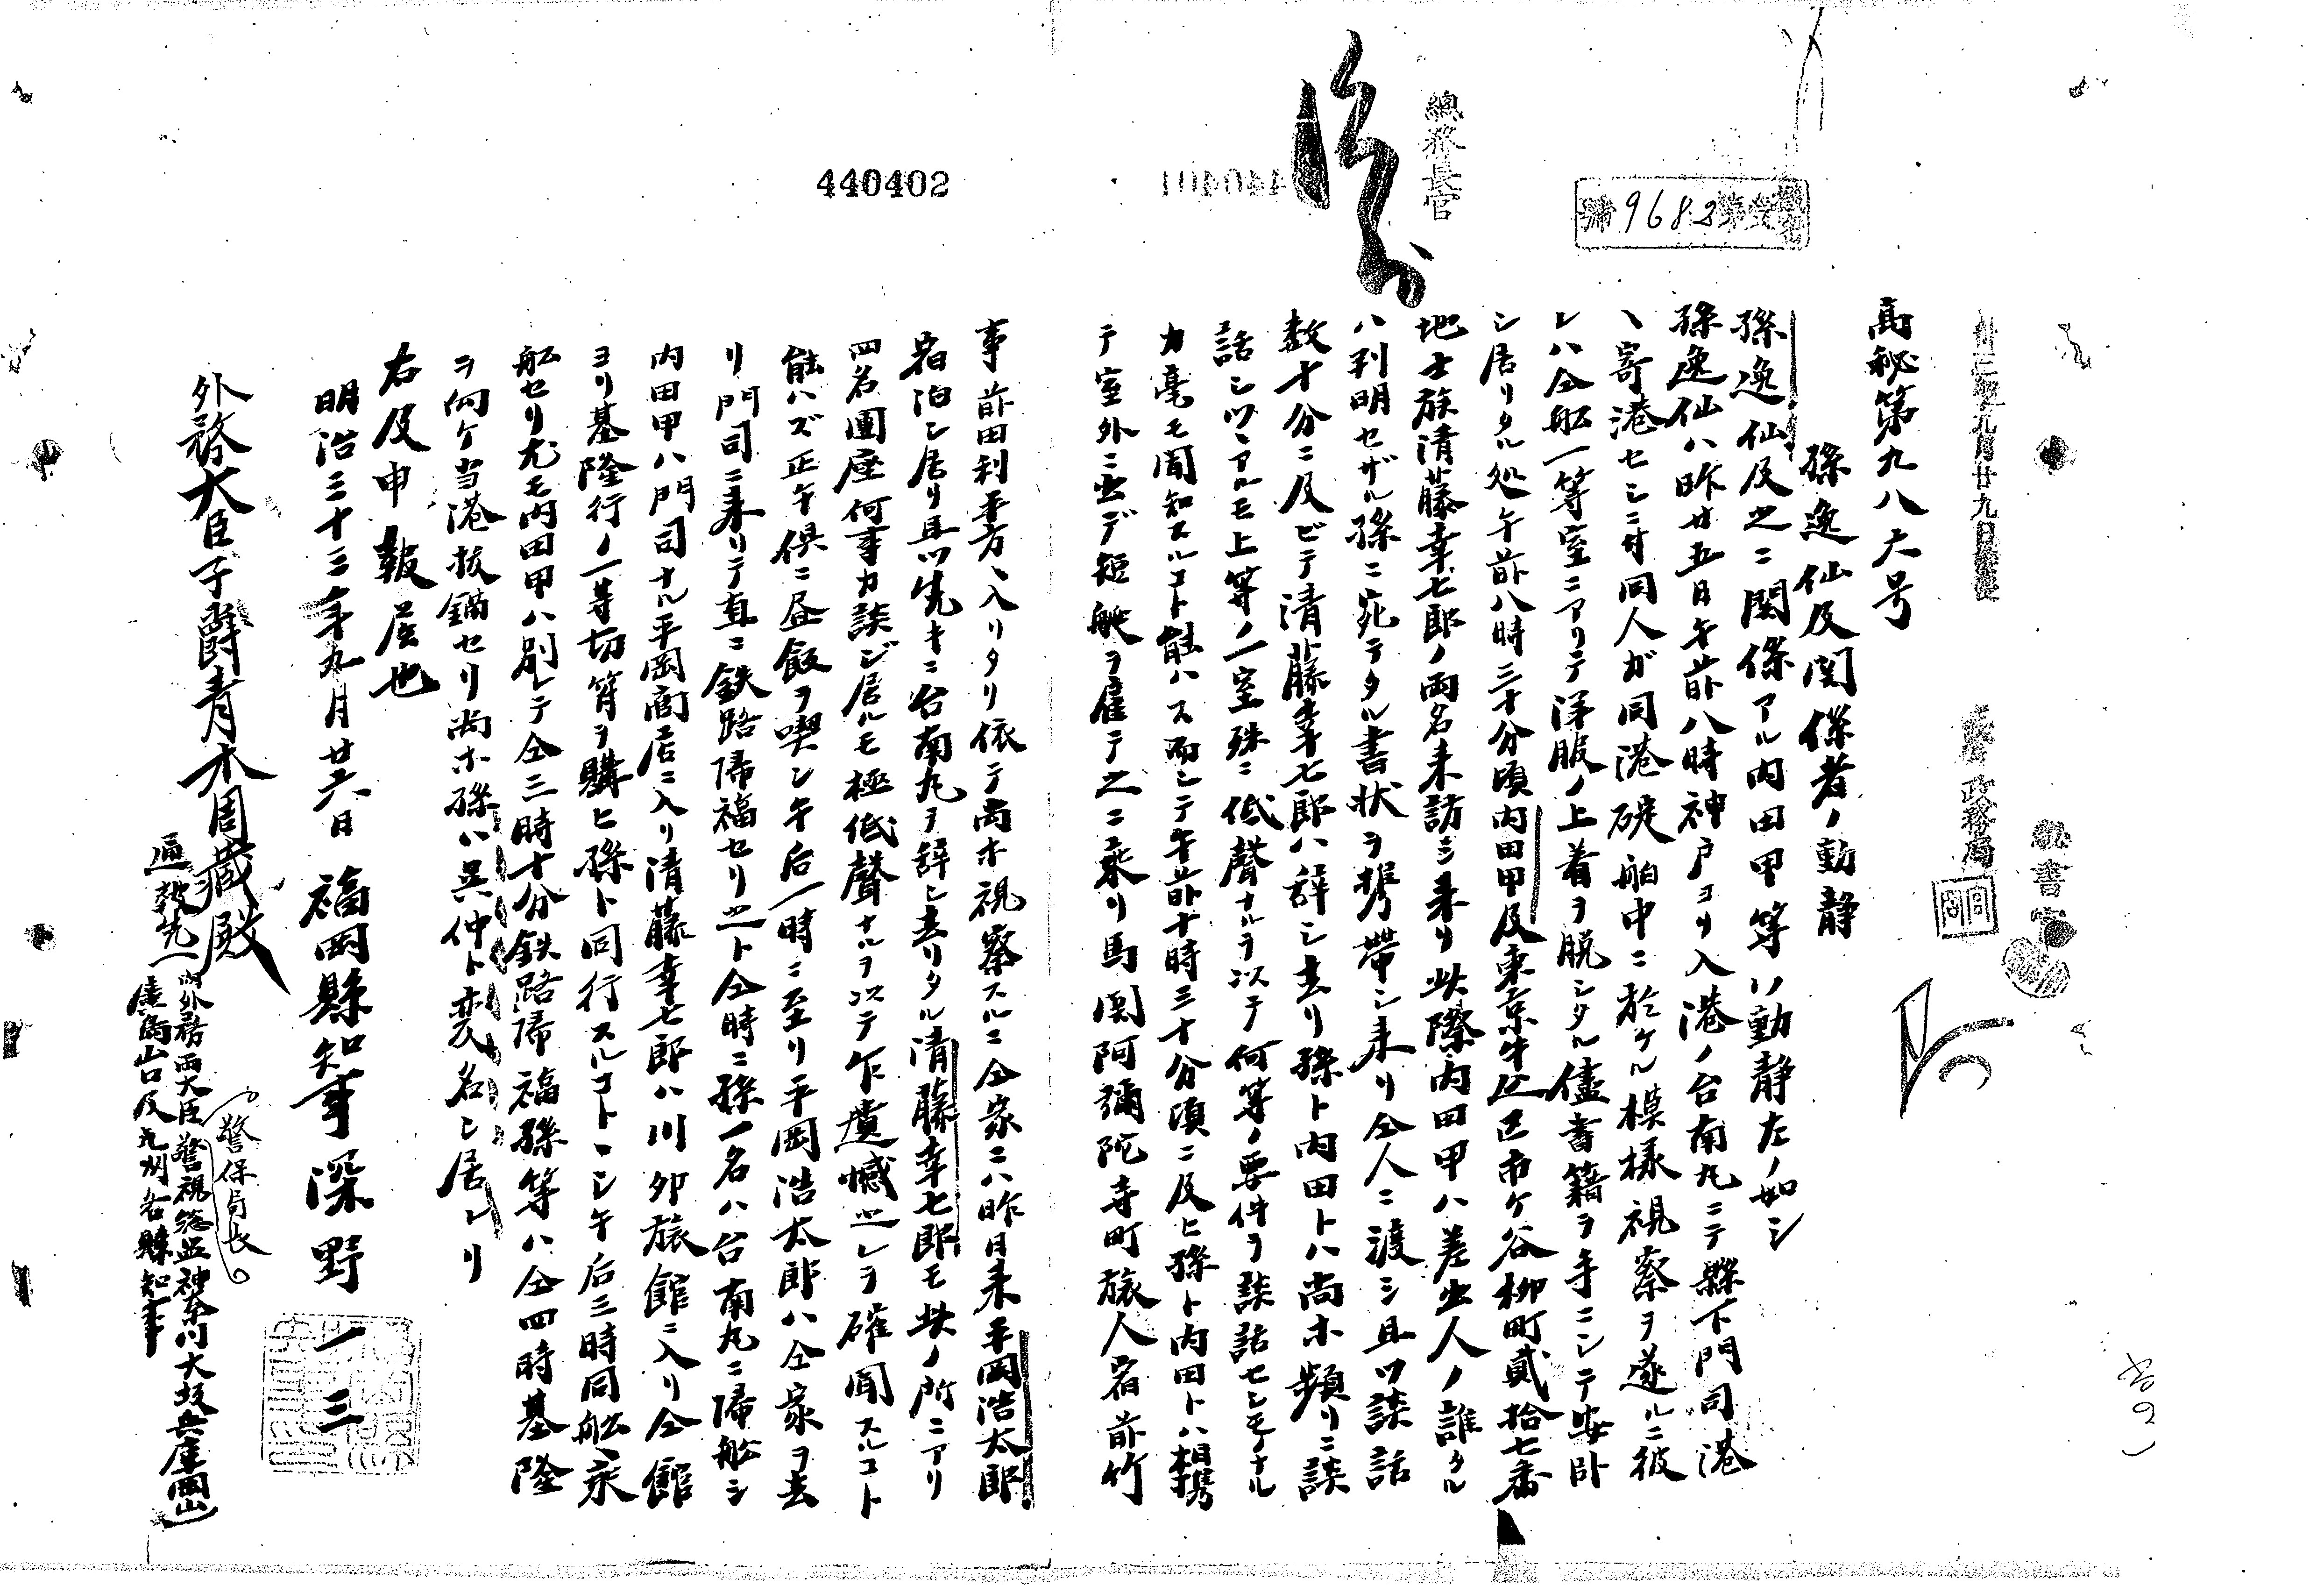 總務長官
9682
440401
440402
政務局
秘書官
高秘第九八六号
孫逸仙及関係者ノ動静
孫逸仙及之ニ関係アル内田甲等ノ動静左ノ如シ
孫逸仙ハ昨廿五日午前八時神戸ヨリ入港ノ台南丸ニテ縣下門司港
ヘ寄港セシニ付同人ガ同港碇舶中ニ於ケル模様視察ヲ遂ルニ彼
レハ仝舩一等室ニアリテ洋服ノ上着ヲ脱シタル儘書籍ヲ手ニシテ安臥
シ居リタル処午前八時三十分頃内田甲及東京牛込区市ケ谷柳町貳拾七番
地士族清藤幸七郎ノ両名来訪シ来リ此際内田甲ハ差出人ノ誰タル
ハ判明セザル孫ニ宛テタル書状ヲ携帯シ来リ仝人ニ渡シ且ツ談話
数十分ニ及ビテ清藤幸七郎ハ辞シ去リ孫ト内田トハ尚ホ頻リニ談
話シツヽアルモ上等ノ一室殊ニ低聲ナルヲ以テ何等ノ要件ヲ談話セシモノナル
カ毫モ聞知スルコト能ハス而シテ午前十時三十分頃ニ及ヒ孫ト内田トハ相携
テ室外ニ出デ短艇ヲ雇テ之ニ乗リ馬関阿彌陀寺町旅人宿前竹
事前田利平方ヘ入リタリ依テ尚ホ視察スルニ仝家ニハ昨日来平岡浩太郎
宿泊シ居リ且ツ先キニ台南丸ヲ辞シ去リタル清藤幸七郎モ此ノ所ニアリ
四名圍座何事カ談ジ居ルモ極低聲ナルヲ以テ乍遺憾之レヲ確聞スルコト
能ハズ正午倶ニ昼飯ヲ喫シ午后一時ニ至リ平岡浩太郎ハ仝家ヲ去
リ門司ニ来リテ直ニ鉄路帰福セリ之ト仝時ニ孫一名ハ台南丸ニ帰舩シ
内田甲ハ門司ナル平岡商店ニ入リ清藤幸七郎ハ川卯旅館ニ入リ仝館
ヨリ基隆行ノ一等切符ヲ購ヒ孫ト同行スルコトヽシ午后三時同舩ヘ乗
舩セリ尤モ内田甲ハ別レテ仝三時十分鉄路帰福孫等ハ仝四時基隆
ヲ向ケ当港抜錨セリ尚ホ孫ハ呉仲ト変名シ居レリ
右及申報候也
明治三十三年九月廿六日
福岡縣知事深野一三
外務大臣子爵青木周蔵殿
警保局長
通報先
内外務両大臣警視総監神奈川大坂兵庫岡山
廣島山口及九州各縣知事